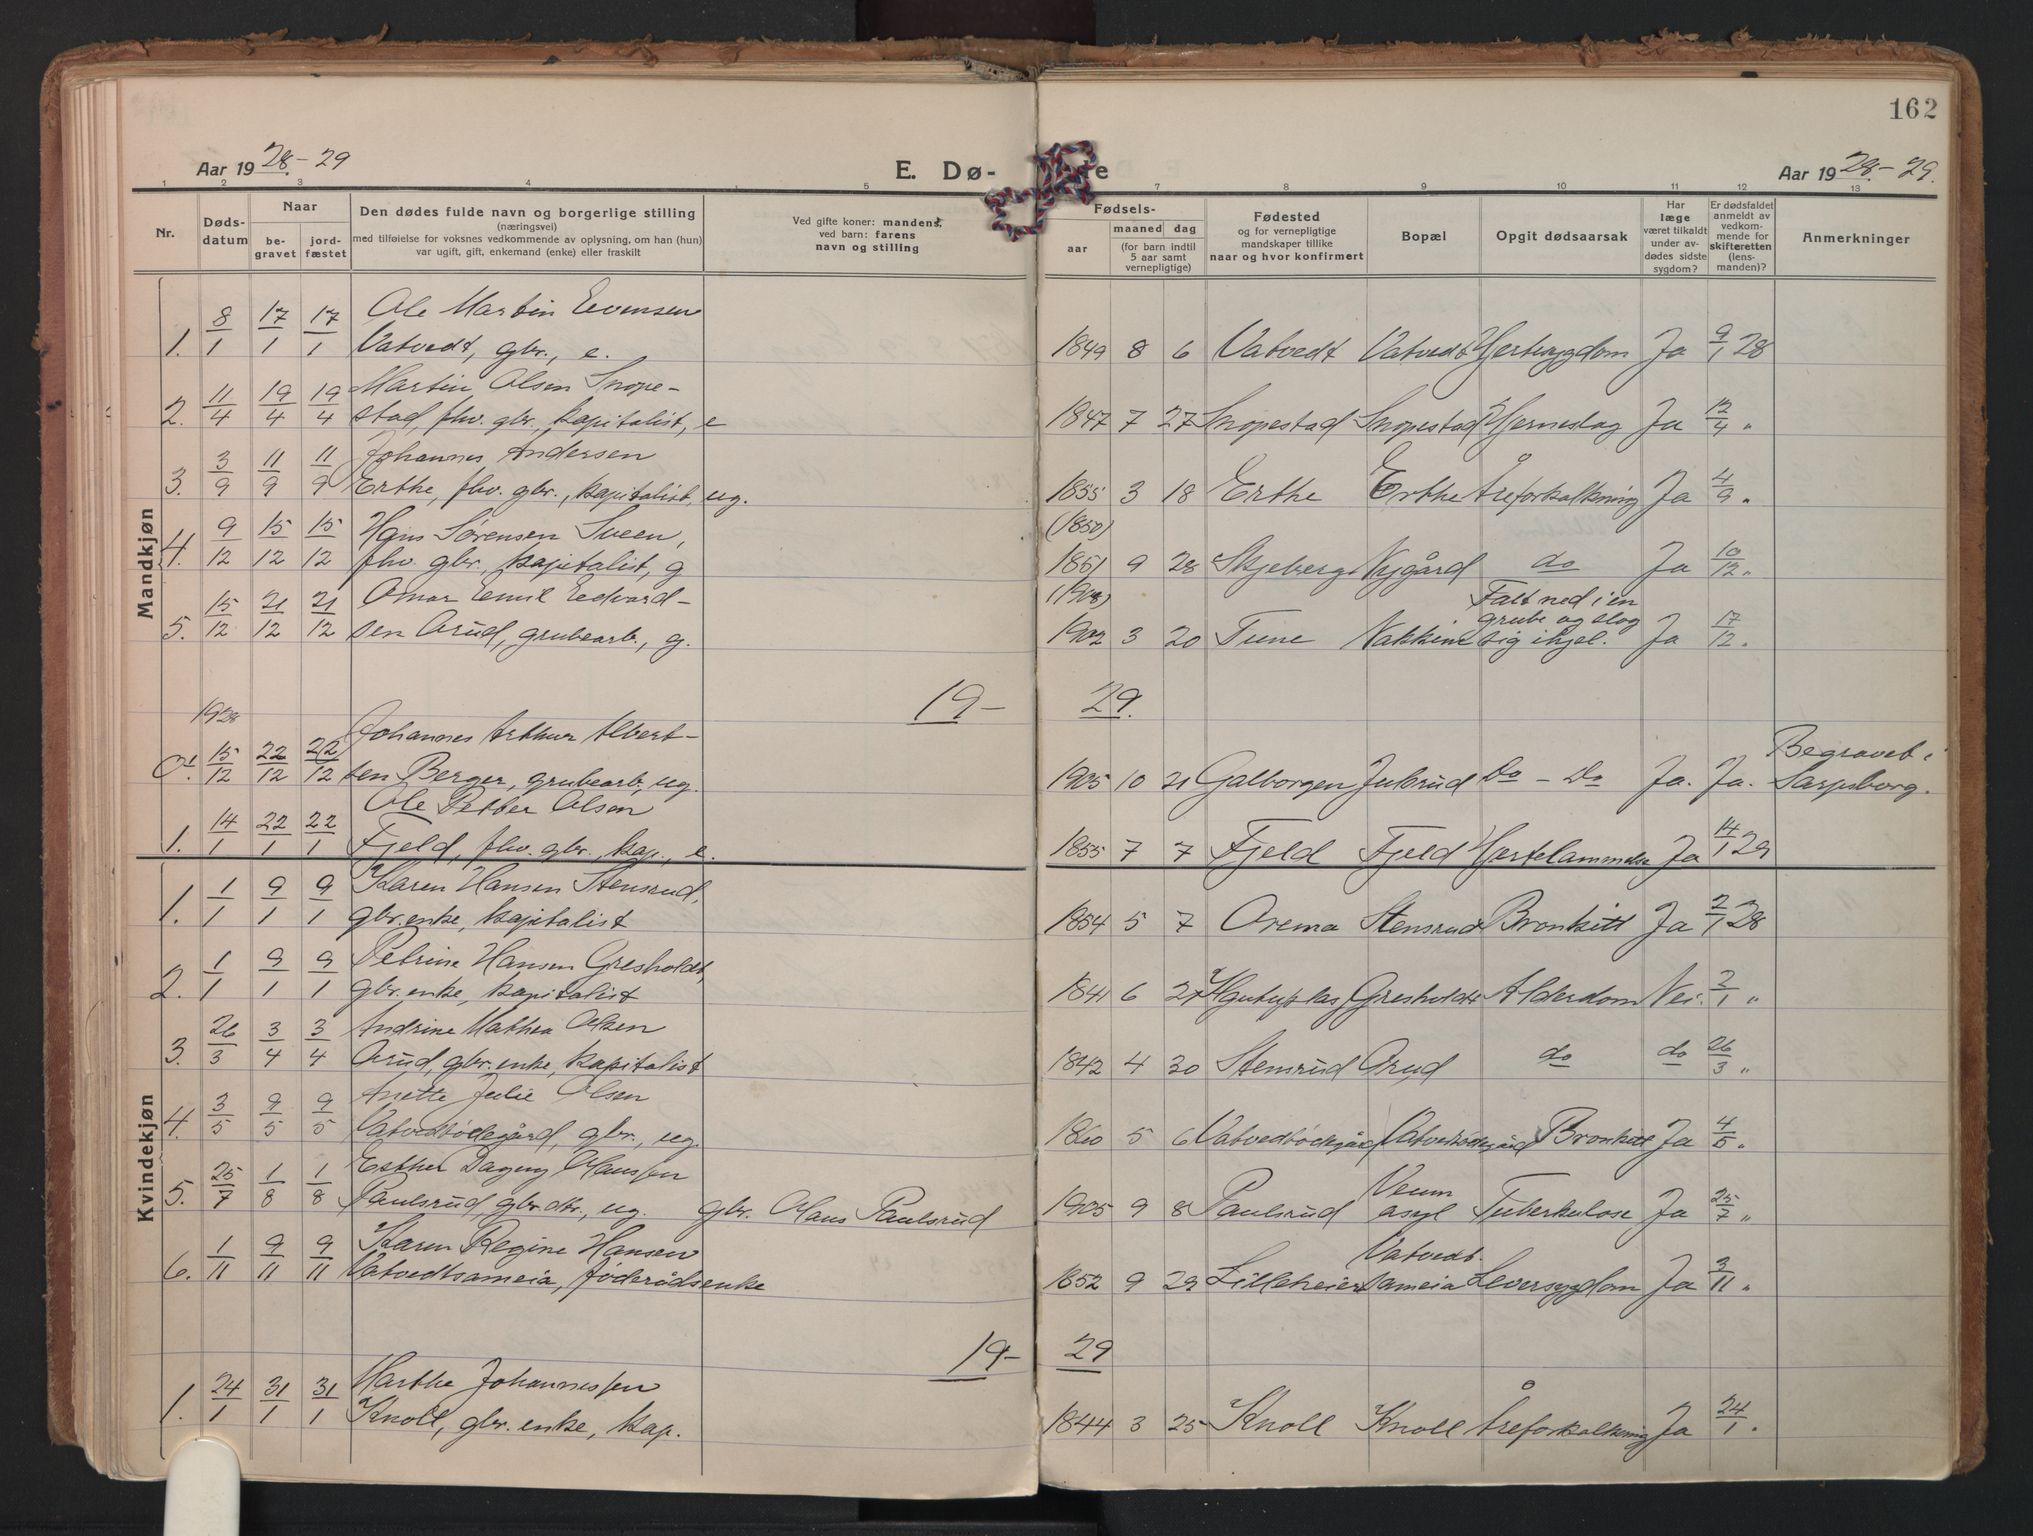 162
Aar 1928.-29 E. Dø- re Aar 1928.-29.
1 2 3 4 5 7 8 9 10 11 12 13
Nr. Døds-datum Naar be-gravet jord-fæstet Den dødes fulde navn og borgerlige stilling (næringsvei) med tilføielse for voksnes vedkommende av oplysning, om han (hun) var ugift, gift, enkemand (enke) eller fraskilt Ved gifte koner: mandens, ved barn: farens navn og stilling Fødsels- aar maaned dag (for barn indtil 5 aar samt vernepligtige) Fødested og for vernepligtige mandskaper tillike naar og hvor konfirmert Bopæl Opgit dødsaarsak Har læge været tilkaldt under av-dødes sidste sygdom? Er dødsfaldet anmeldt av vedkom-mende for skifteretten (lens-manden)? Anmerkninger
Mandkjøn
8 17 17 Ole Martin Evensen
1. 1 1 1 Vatvedt, gbr., e. 1849 8 6 Vatvedt Vatvedt Hjertesygdom Ja 9/1 28
11 19 19 Martin Olsen Snope-
2. 4 4 4 stad, fhv. gbr., kapitalist, e 1847 7 27 Snopestad Snopestad Hjerneslag Ja 12/4 "
3 11 11 Johannes Andersen
3. 9 9 9 Erthe, fhv. gbr., kapitalist, ug. 1855 3 18 Erthe Erthe Åreforkalkning Ja 4/9 "
9 15 15 Hans Sørensen Sveen, (1850)
4. 12 12 12 fhv. gbr., kapitalist, g 1851 9 28 Skjeberg Nygård do Ja 10/12 "
15 21 21 Omar Emil Edvard- (1903) Falt ned i en
5. 12 12 12 sen Grud, grubearb., g. 1902 3 20 Tune Nakkim grube og slog sig ihjel. Ja 17/12 "
19- 29.
1928
15 22 22 Johannes Arthur Albert- Begravet i
0. 12 12 12 sen Berger, grubearb., ug. 1905 10 21 Galborgen Julsrud Do - Do Ja. Ja. Sarpsborg.
14 22 22 Ole Petter Olsen
1. 1 1 1 Fjeld, fhv. gbr., kap., e. 1855 7 7 Fjeld Fjeld Hjertelammelse Ja 14/1 29
Kvindekjøn
1 9 9 Karen Hansen Stensrud,
1. 1 1 1 gbr.enke, kapitalist 1854 5 7 Orema Stensrud Bronkitt Ja 2/1 28
1 9 9 Petrine Hansen Gresholdt,
2. 1 1 1 gbr.enke, kapitalist 1841 6 27 Gresholdt Alderdom Nei. 2/1 "
26 3 3 Andrine Mathea Olsen
3. 3 4 4 Grud, gbr. enke, kapitalist 1842 4 30 Stensrud Grud do do 26/3 "
3 9 9 Anette Julie Olsen
4. 5 5 5 Vatvedtødegård, gbr., ug. 1860 5 6 Vatvedtødegård Vatvedtødegård Bronkitt Ja 4/5 "
25 1 1 Esther Dagny Olaussen Veum
5. 7 8 8 Paulsrud, gbr.dtr., ug. gbr. Olaus Paulsrud 1905 9 8 Paulsrud asyl Tuberkulose Ja 25/7 "
1 9 9 Karen Regine Hansen Vatvedt
6. 11 11 11 Vatvedtsameia, føderådsenke 1852 9 29 Lilleheier sameia Leversygdom Ja 3/11 "
19- 29
24 31 31 Marthe Johannessen
1. 1 1 1 Knoll, gbr. enke, kap. 1844 3 25 Knoll Knoll Åreforkalkning Ja 24/1 "